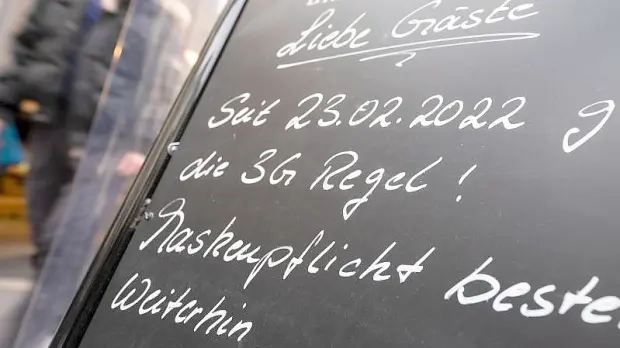 Liebe Gäste
Seit 23.02.2022 g
die 3G Regel !
Maskenpflicht beste
Weiterhin